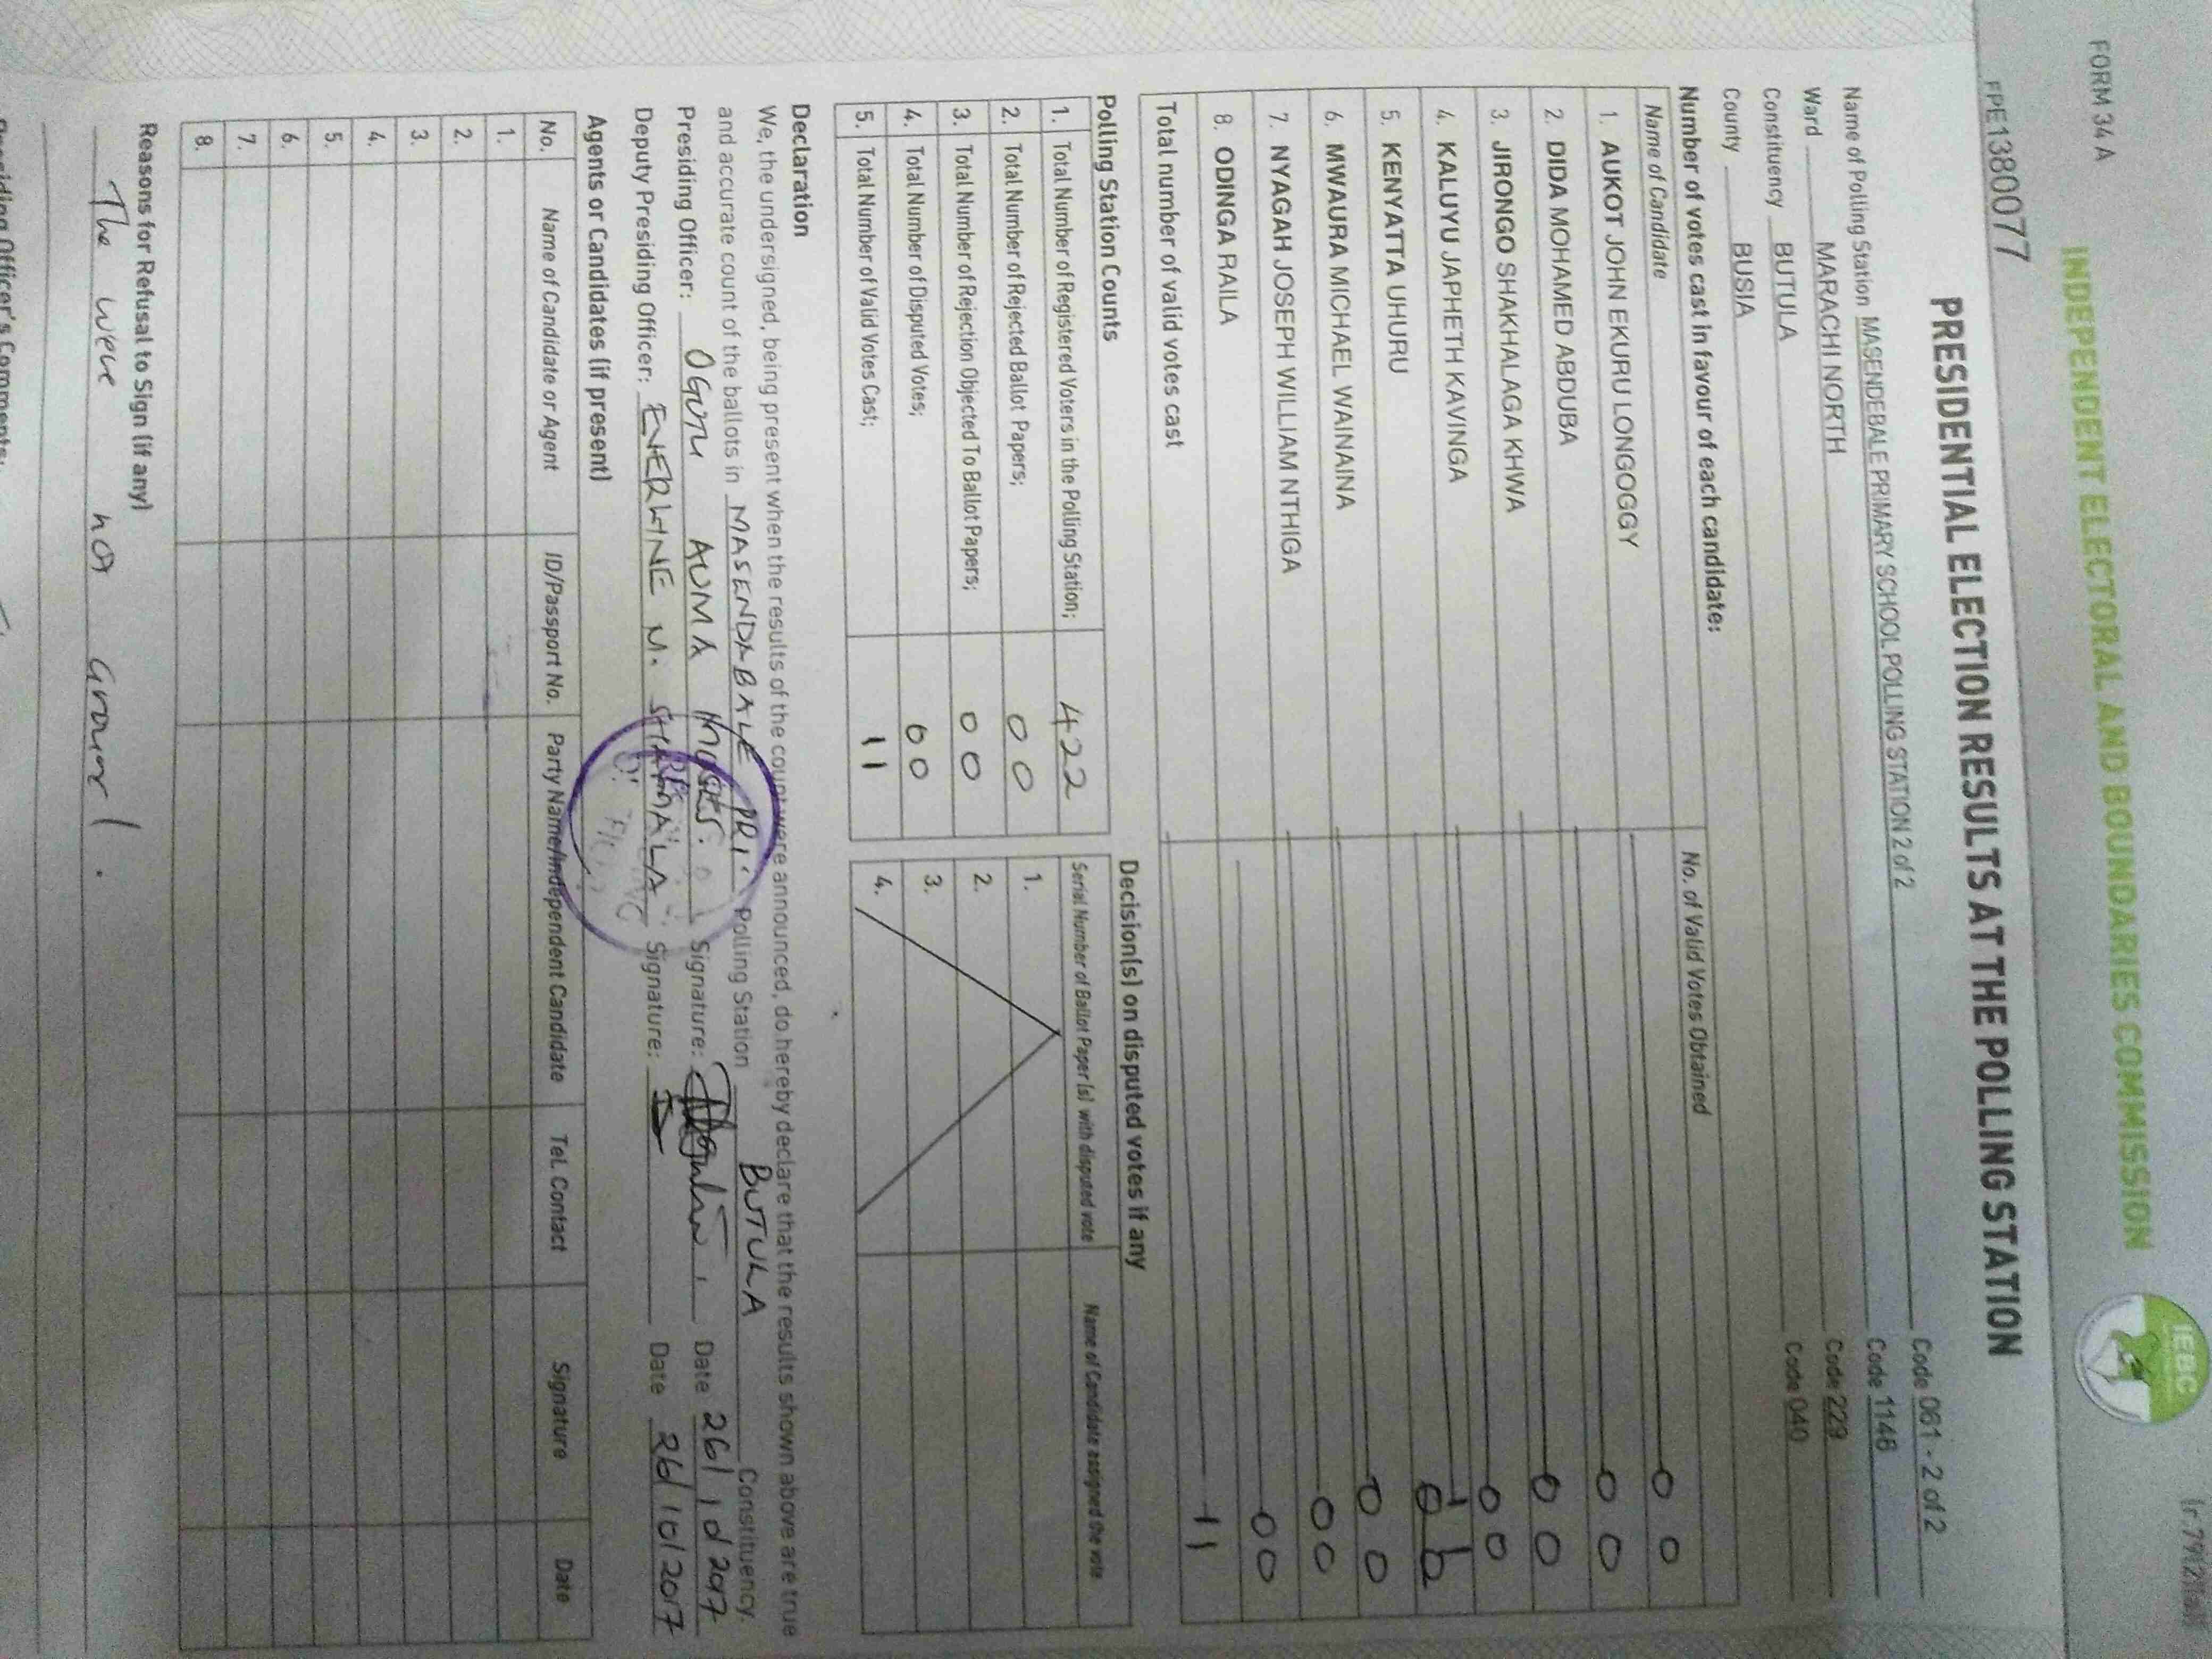 (r.79(2)(a))
FORM 34 A
INDEPENDENT ELECTORAL AND BOUNDARIES COMMISSION
IEBC
FPE1380077
PRESIDENTIAL ELECTION RESULTS AT THE POLLING STATION
Name of Polling Station MASENDEBALE PRIMARY SCHOOL POLLING STATION 2 of 2 Code 061 - 2 of 2
Ward MARACHI NORTH Code 1146
Constituency BUTULA Code 229
County BUSIA Code 040
Number of votes cast in favour of each candidate:
Name of Candidate No. of Valid Votes Obtained
1. AUKOT JOHN EKURU LONGOGGY 00
2. DIDA MOHAMED ABDUBA 00
3. JIRONGO SHAKHALAGA KHWA 00
4. KALUYU JAPHETH KAVINGA 00
5. KENYATTA UHURU
6. MWAURA MICHAEL WAINAINA 00
7. NYAGAH JOSEPH WILLIAM NTHIGA 00
8. ODINGA RAILA 00
Total number of valid votes cast 11
Polling Station Counts
1. Total Number of Registered Voters in the Polling Station; 422
2. Total Number of Rejected Ballot Papers; 00
3. Total Number of Rejection Objected To Ballot Papers; 00
4. Total Number of Disputed Votes; 00
5. Total Number of Valid Votes Cast; 11
Decision(s) on disputed votes if any
Serial Number of Ballot Paper (s) with disputed vote Name of Candidate assigned the vote
1.
2.
3.
4.
Declaration
We, the undersigned, being present when the results of the count were announced, do hereby declare that the results shown above are true
and accurate count of the ballots in MASENDABALE PRI Polling Station BUTULA Constituency.
Presiding Officer: OGUTU AUMA MOSES. Signature: Date 26/10/2017
Deputy Presiding Officer: EVERLINE N. Signature: Date 26/10/2017
Agents or Candidates (if present)
No. Name of Candidate or Agent ID/Passport No. Party Name/Independent Candidate Tel. Contact Signature Date
1.
2.
3.
4.
5.
6.
7.
8.
Reasons for Refusal to Sign (if any)
The were not
Presiding Officer's Comments: